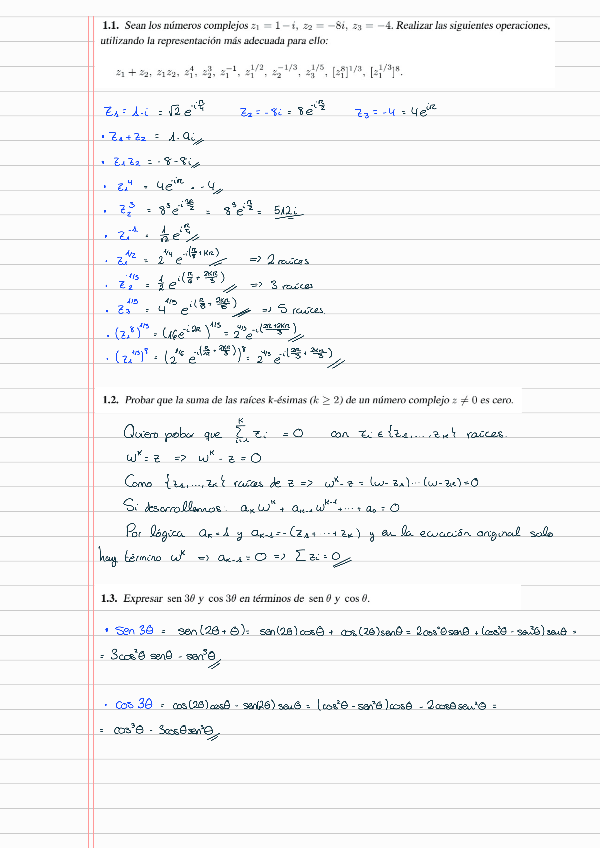 1.1. Sean los números complejos z₁ = 1 − i, z₂ = −8i, z₃ = −4. Realizar las siguientes operaciones,
utilizando la representación más adecuada para ello:
z₁ + z₂, z₁z₂, z₁⁴, z₂³, z₁⁻¹, z₁^{1/2}, z₂^{−1/3}, z₃^{1/5}, [z₁⁸]^{1/3}, [z₁^{1/3}]⁸.
z₁ = 1-i = √2 e^{-iπ/4} z₂ = -8i = 8e^{-iπ/2} z₃ = -4 = 4e^{iπ}
• z₁+z₂ = 1-9i
• z₁z₂ = -8-8i
• z₁⁴ = 4e^{-iπ} = -4
• z₂³ = 8³e^{-i3π/2} = 8³e^{iπ/2} = 512i
• z₁⁻¹ = 1/√2 e^{iπ/4}
• z₁^{1/2} = 2^{1/4} e^{-i(π/8 + kπ)} => 2 raíces
• z₂^{-1/3} = 1/2 e^{i(π/6 + 2kπ/3)} => 3 raíces
• z₃^{1/5} = 4^{1/5} e^{i(π/5 + 2kπ/5)} => 5 raíces
• (z₁⁸)^{1/3} = (16e^{-i2π})^{1/3} = 2^{4/3} e^{-i(2π+2kπ/3)}
• (z₁^{1/3})⁸ = (2^{1/6} e^{-i(π/12 + 2kπ/3)})⁸ = 2^{4/3} e^{-i(2π/3 + 2kπ/3)}
1.2. Probar que la suma de las raíces k-ésimas (k ≥ 2) de un número complejo z ≠ 0 es cero.
Quiero probar que ∑_{i=1}^{k} zᵢ = 0 con zᵢ ∈ {z₁,...,z_k} raíces.
w^k = z => w^k - z = 0
Como {z₁,...,z_k} raíces de z => w^k - z = (w-z₁)···(w-z_k) = 0
Si desarrollamos: a_k w^k + a_{k-1} w^{k-1} + ··· + a₀ = 0
Por lógica a_k = 1 y a_{k-1} = -(z₁+···+z_k) y en la ecuación original solo
hay término w^k => a_{k-1} = 0 => ∑zᵢ = 0
1.3. Expresar sen 3θ y cos 3θ en términos de sen θ y cos θ.
• sen 3θ = sen(2θ+θ) = sen(2θ)cosθ + cos(2θ)senθ = 2cos²θsenθ + (cos²θ - sen²θ)senθ =
= 3cos²θ senθ - sen³θ
• cos 3θ = cos(2θ)cosθ - sen(2θ)senθ = (cos²θ - sen²θ)cosθ - 2cosθsen²θ =
= cos³θ - 3cosθsen²θ